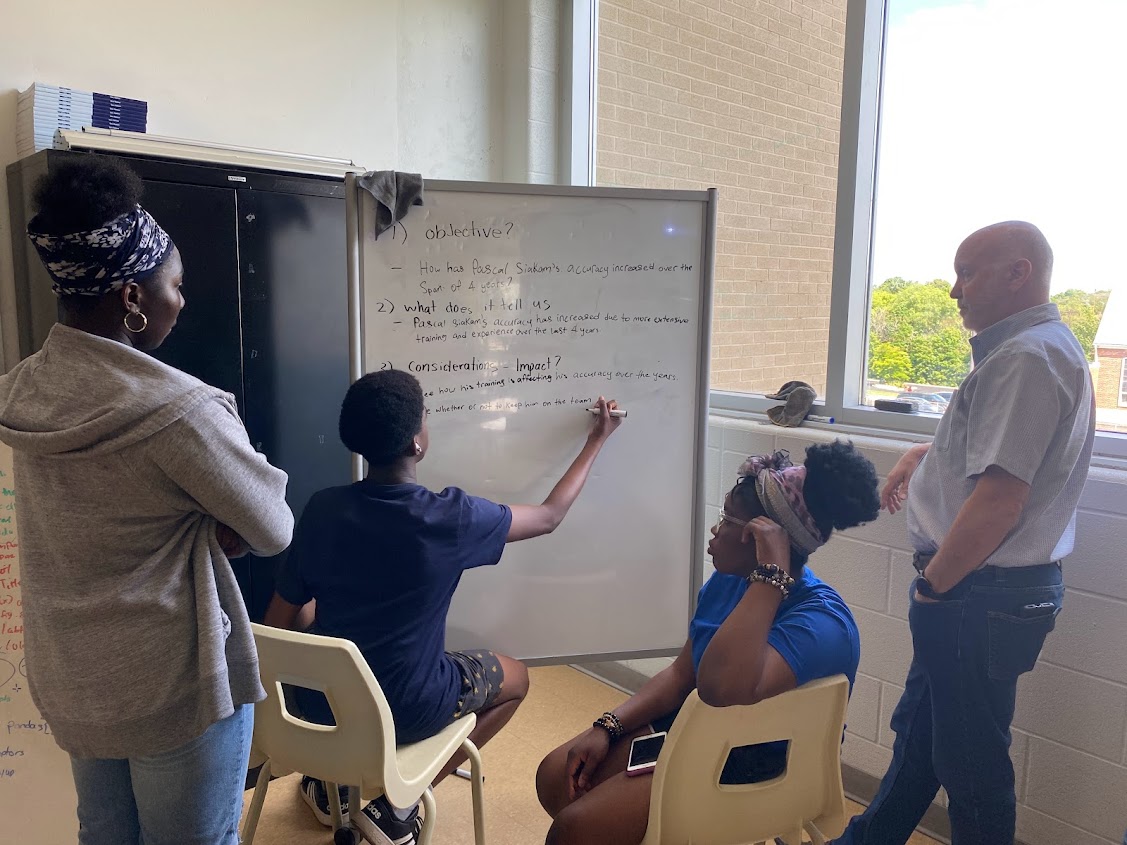 1) objective?
- How has Pascal Siakam's accuracy increased over the
Span of 4 years?
2) what does it tell us
- Pascal Siakam's accuracy has increased due to more extensive
training and experience over the last 4 years
Considerations - Impact?
how his training is affecting his accuracy over the years.
whether or not to keep him on the team
Title
pandas